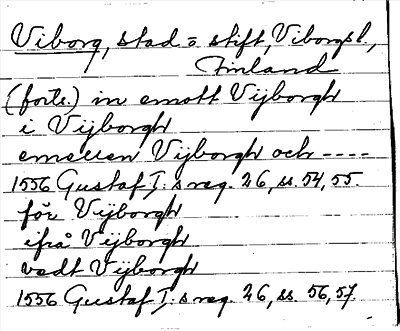 Viborg, stad o stift, Viborgsl.,
Finland
(forts.) in emott Vijborgh
i Vijborgh
emellen Vijborgh och ----
1556 Gustaf I:s reg. 26, ss. 54, 55.
för Vijborgh
ifrå Vijborgh
vedt Vijborgh
1556 Gustaf I:s reg. 26, ss. 56, 57.